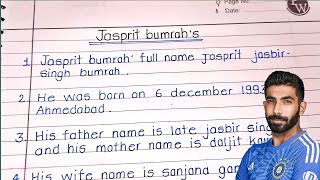 Page No:
Date:
Jasprit bumrah's
1. Jasprit bumrah' full name jasprit jasbir-
singh bumrah.
2. He was born on 6 december 1993
Ahmedabad.
3. His father name is late jasbir sing
and his mother name is daljit kau
4. His wife name is sanjana gan